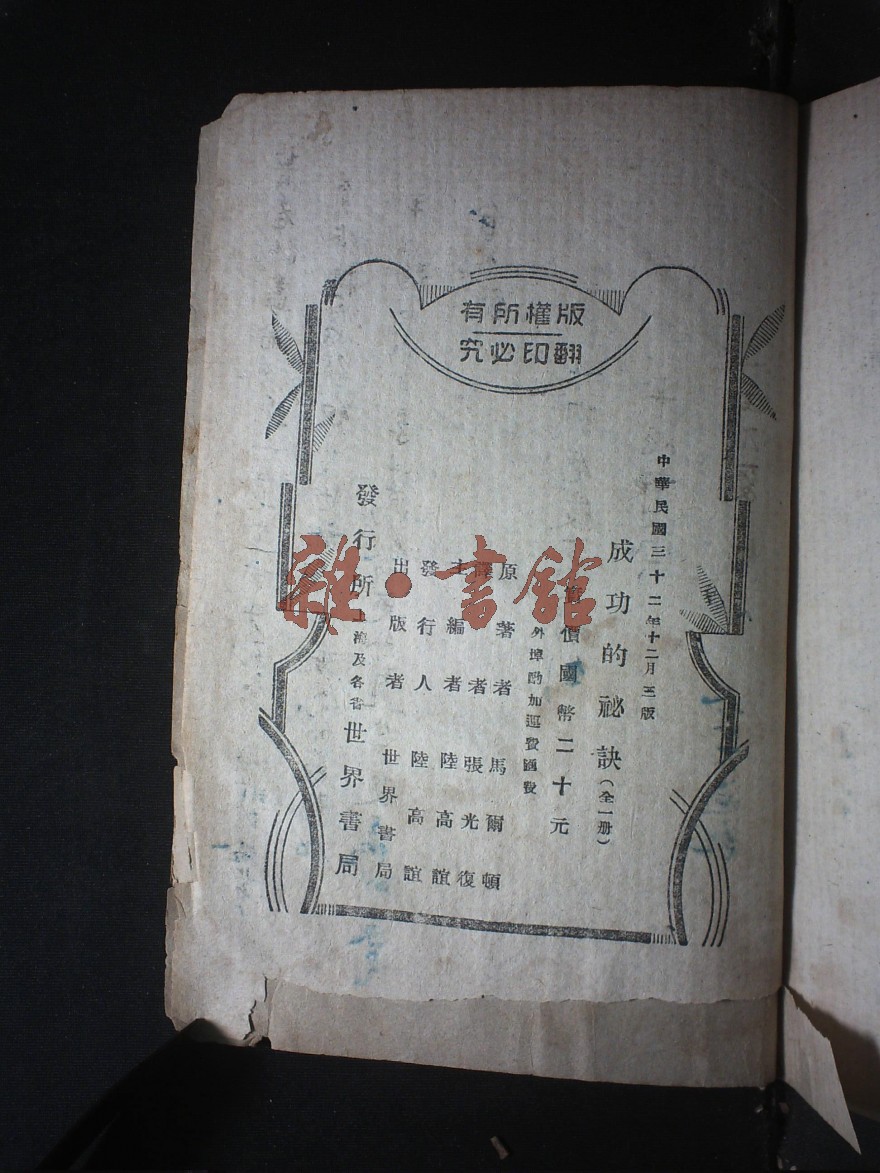 版權所有
翻印必究
中華民國三十二年十二月三版
成功的祕訣（全一册）
價國幣二十元
外埠酌加運費匯費
原著者 馬爾頓
譯者 張光復
主編者 陸高誼
發行人 陸高誼
出版者 世界書局
發行所 上海及各省 世界書局
雜·書館